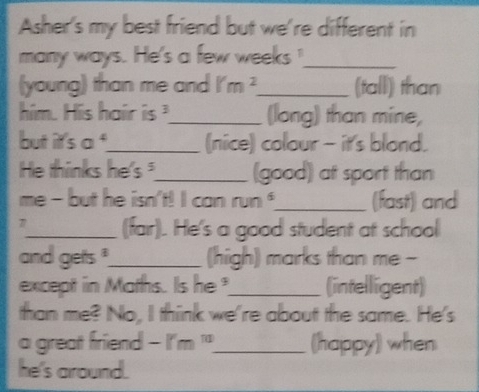 Asher's my best friend but we're different in
many ways. He's a few weeks ¹________
(young) than me and I'm ²________ (tall) than
him. His hair is ³________ (long) than mine,
but it's a ⁴________ (nice) colour – it's blond.
He thinks he's ⁵________ (good) at sport than
me – but he isn't! I can run ⁶________ (fast) and
⁷________ (far). He's a good student at school
and gets ⁸________ (high) marks than me –
except in Maths. Is he ⁹________ (intelligent)
than me? No, I think we're about the same. He's
a great friend – I'm ¹⁰________ (happy) when
he's around.